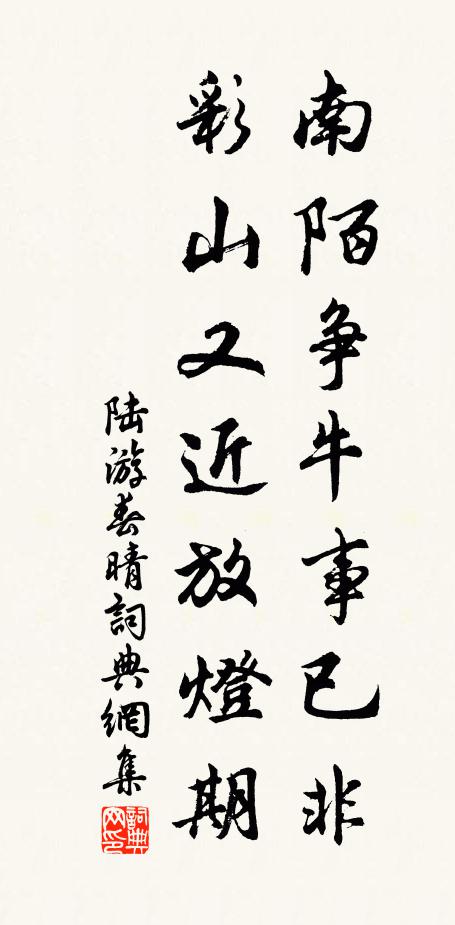 南陌争牛事已非
彩山又近放燈期
陆游春晴詞典網集
詞典网印